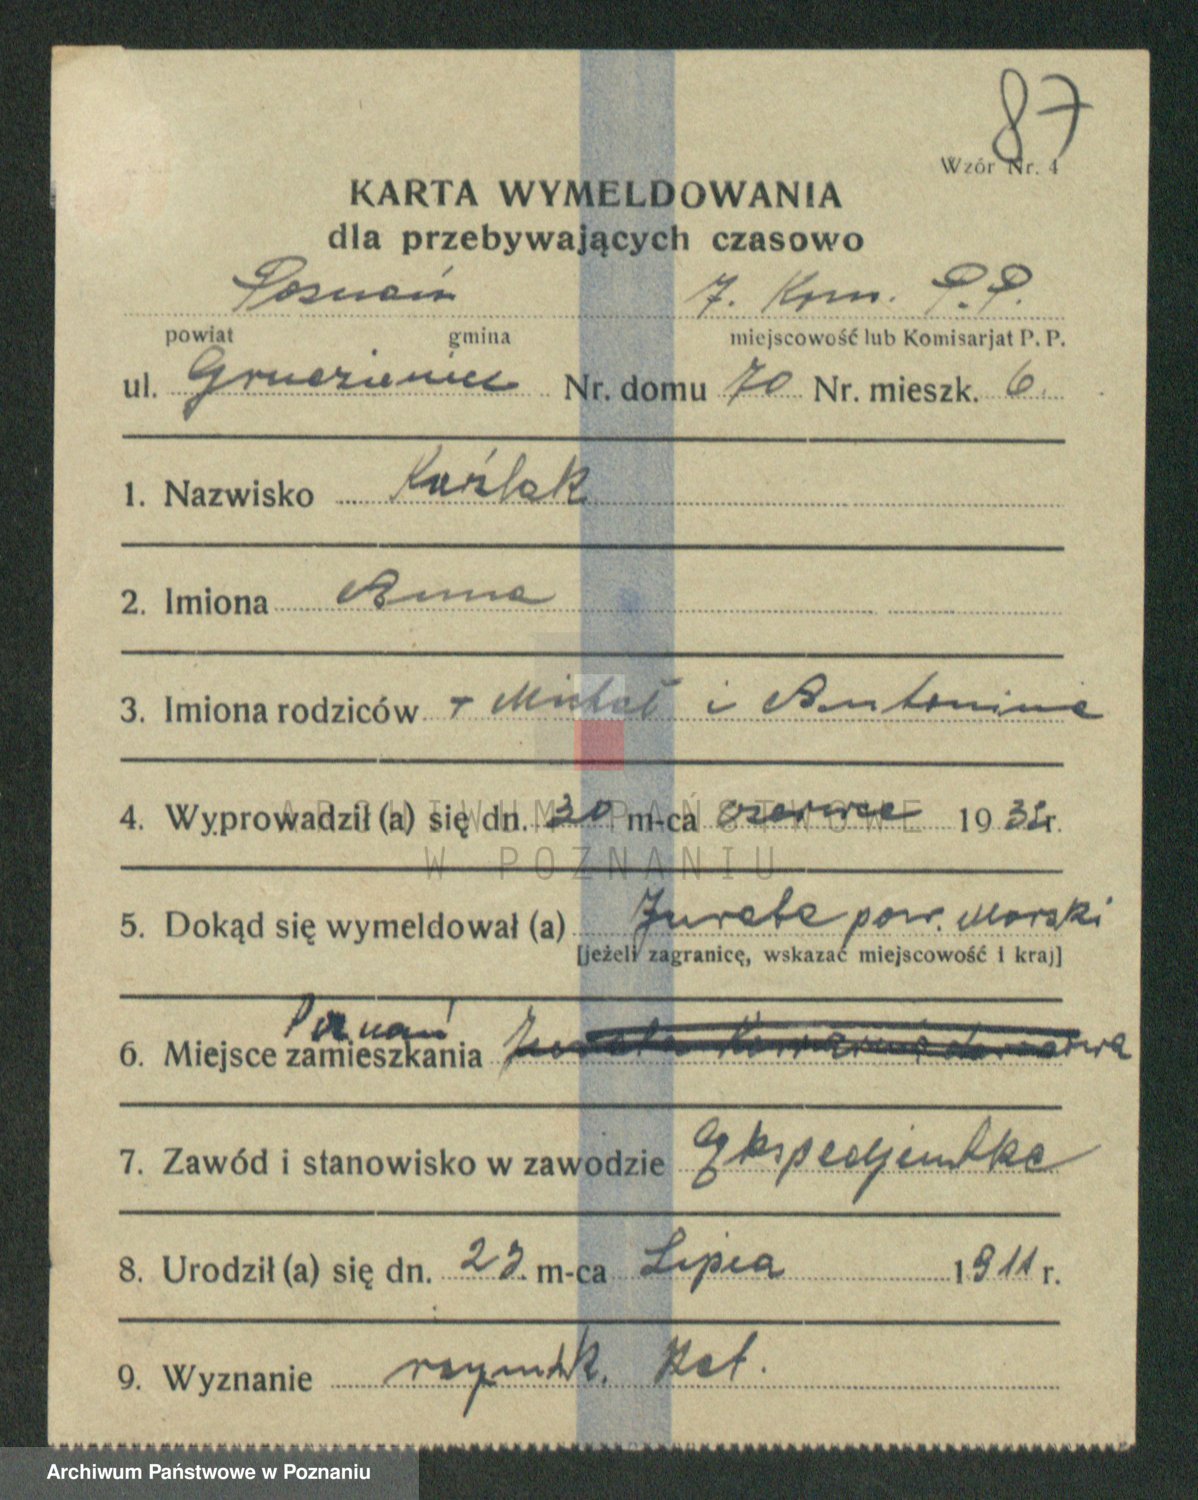 87
Wzór Nr. 4
KARTA WYMELDOWANIA
dla przebywających czasowo
Poznań 7. Kom. P.P.
powiat gmina miejscowość lub Komisarjat P. P.
ul. Nr. domu 70 Nr. mieszk. 6.
1. Nazwisko Koźlak
2. Imiona Anna
3. Imiona rodziców + Michał i Antonina
ARCHIWUM PAŃSTWOWE
4. Wyprowadził (a) się dn. 30 m-ca czerwca 19 r.
W POZNANIU
5. Dokąd się wymeldował (a) Jurata pow. Morski
[jeżeli zagranicę, wskazać miejscowość i kraj]
Poznań
6. Miejsce zamieszkania
7. Zawód i stanowisko w zawodzie Ekspedjentka
8. Urodził (a) się dn. 23. m-ca Lipca 1911 r.
9. Wyznanie rzymsk. Kat.
Archiwum Państwowe w Poznaniu